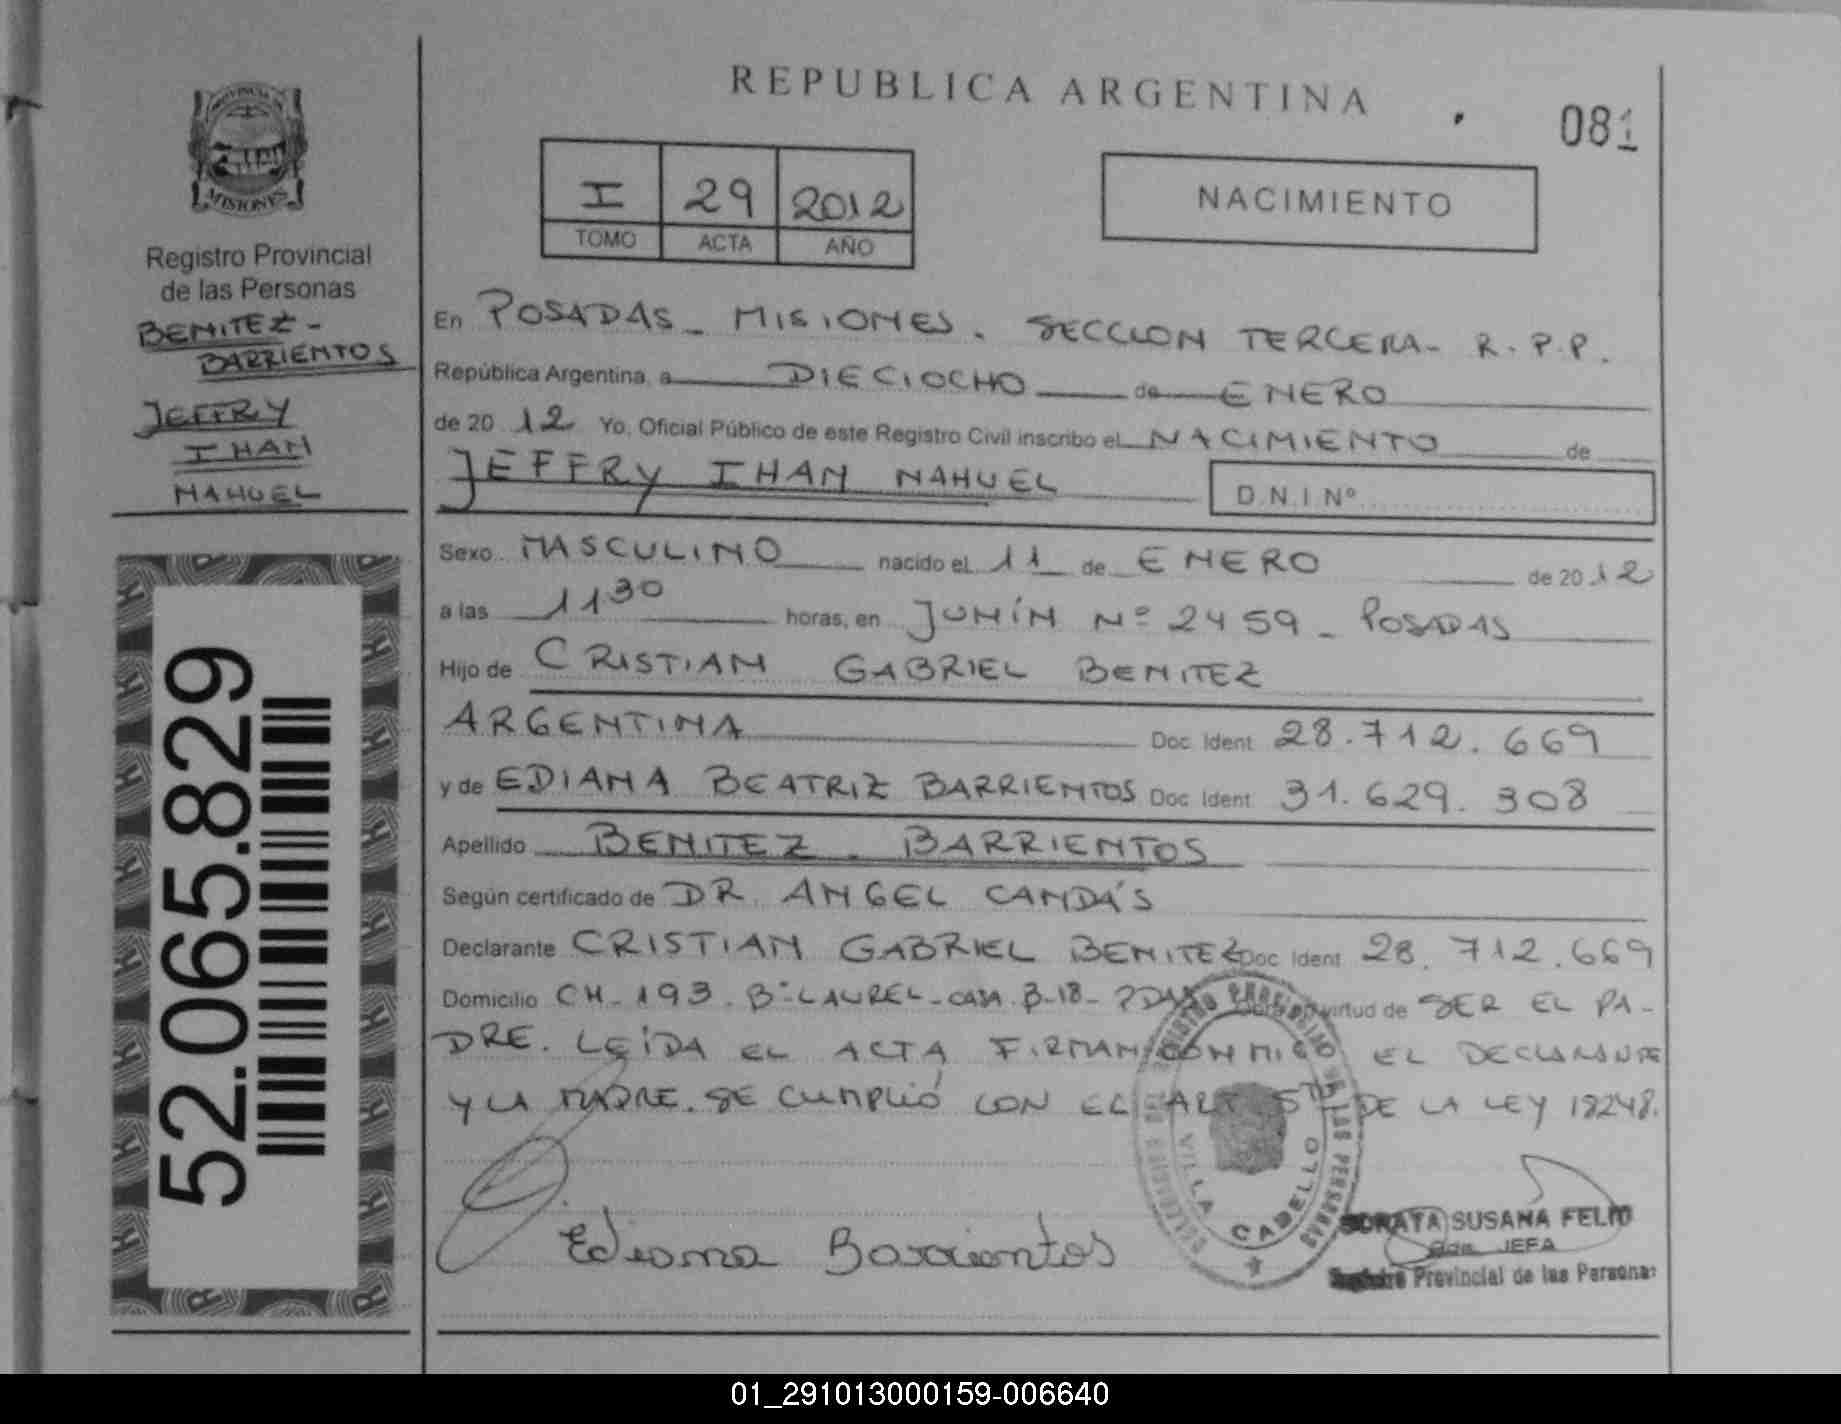 REPUBLICA ARGENTINA
081
PROVINCIA DE
MISIONES
Registro Provincial
de las Personas
BENITEZ -
BARRIENTOS
JEFFRY
IHAN
NAHUEL
52.065.829
I 29 2012
TOMO ACTA AÑO
NACIMIENTO
En POSADAS - MISIONES. SECCION TERCERA - R.P.P.
República Argentina, a DIECIOCHO de ENERO
de 20 12 Yo, Oficial Público de este Registro Civil inscribo el NACIMIENTO de
JEFFRY IHAN NAHUEL D.N.I Nº
Sexo MASCULINO nacido el 11 de ENERO de 20 12
a las 11 30 horas, en JUNÍN Nº 2459 - POSADAS
Hijo de CRISTIAN GABRIEL BENITEZ
ARGENTINA Doc. Ident 28.712.669
y de EDIANA BEATRIZ BARRIENTOS Doc Ident 31.629.308
Apellido BENITEZ - BARRIENTOS
Según certificado de DR. ANGEL CANDÁS
Declarante CRISTIAN GABRIEL BENITEZ Doc Ident 28.712.669
Domicilio CH-193. Bº LAUREL-CASA B-18- PDAS Obra en virtud de SER EL PA-
DRE. LEÍDA EL ACTA FIRMAN CONMIGO EL DECLARANTE
Y LA MADRE. SE CUMPLIÓ CON EL ART 5TO DE LA LEY 18248.
Ediana Barrientos
REGISTRO PROVINCIAL DE LAS PERSONAS
VILLA CABELLO
SORAYA SUSANA FELIU
JEFA
Registro Provincial de las Personas
01_291013000159-006640